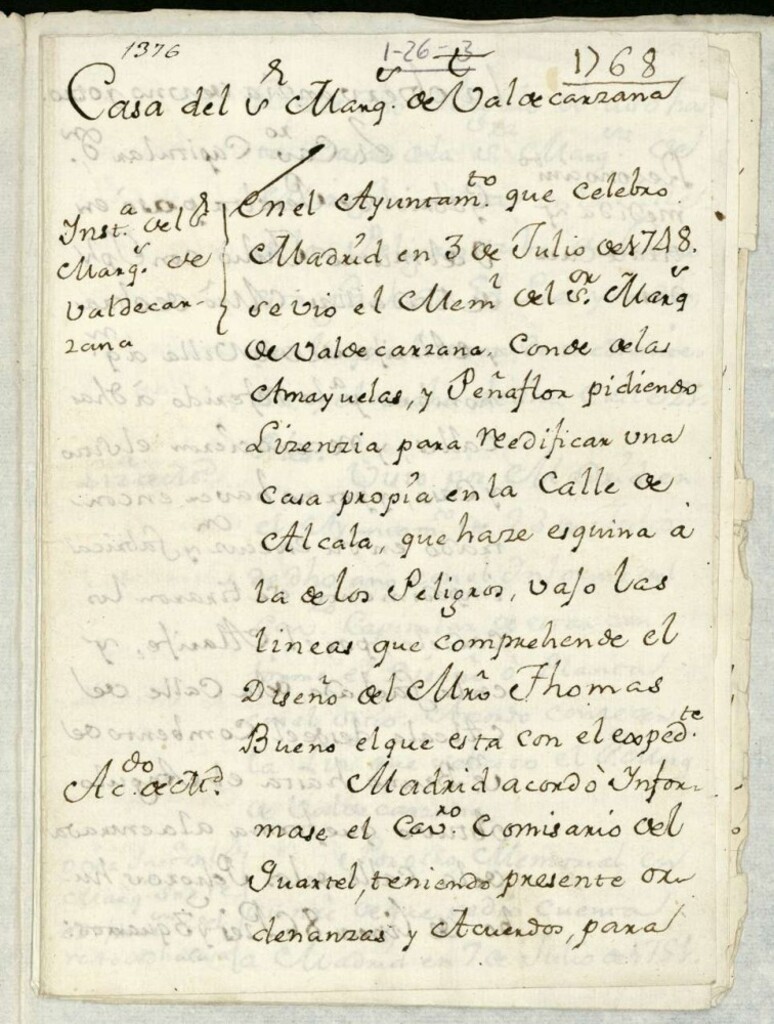 1376
1-26-3
1768
Casa del Sr Marqs. de Valdecarzana
Insta. del Sr
Marqs. de
Valdecar-
zana
En el Ayuntamto. que celebro
Madrid en 3 de Julio de 1748.
se vio el Meml del Sor. Marqs
de Valdecarzana. Conde de las
Amayuelas, y Peñaflor pidiendo
Lizenzia para Redificar una
Casa propia en la Calle de
Alcala, que haze esquina à
la de los Peligros, vajo las
lineas que comprehende el
Diseño del Mro Thomas
Bueno el que esta con el expedte.
Acdo. de Md.
Madrid acordò Infor-
mase el Cavro. Comisario del
Quartel, teniendo presente or-
denanzas y Acuerdos, para